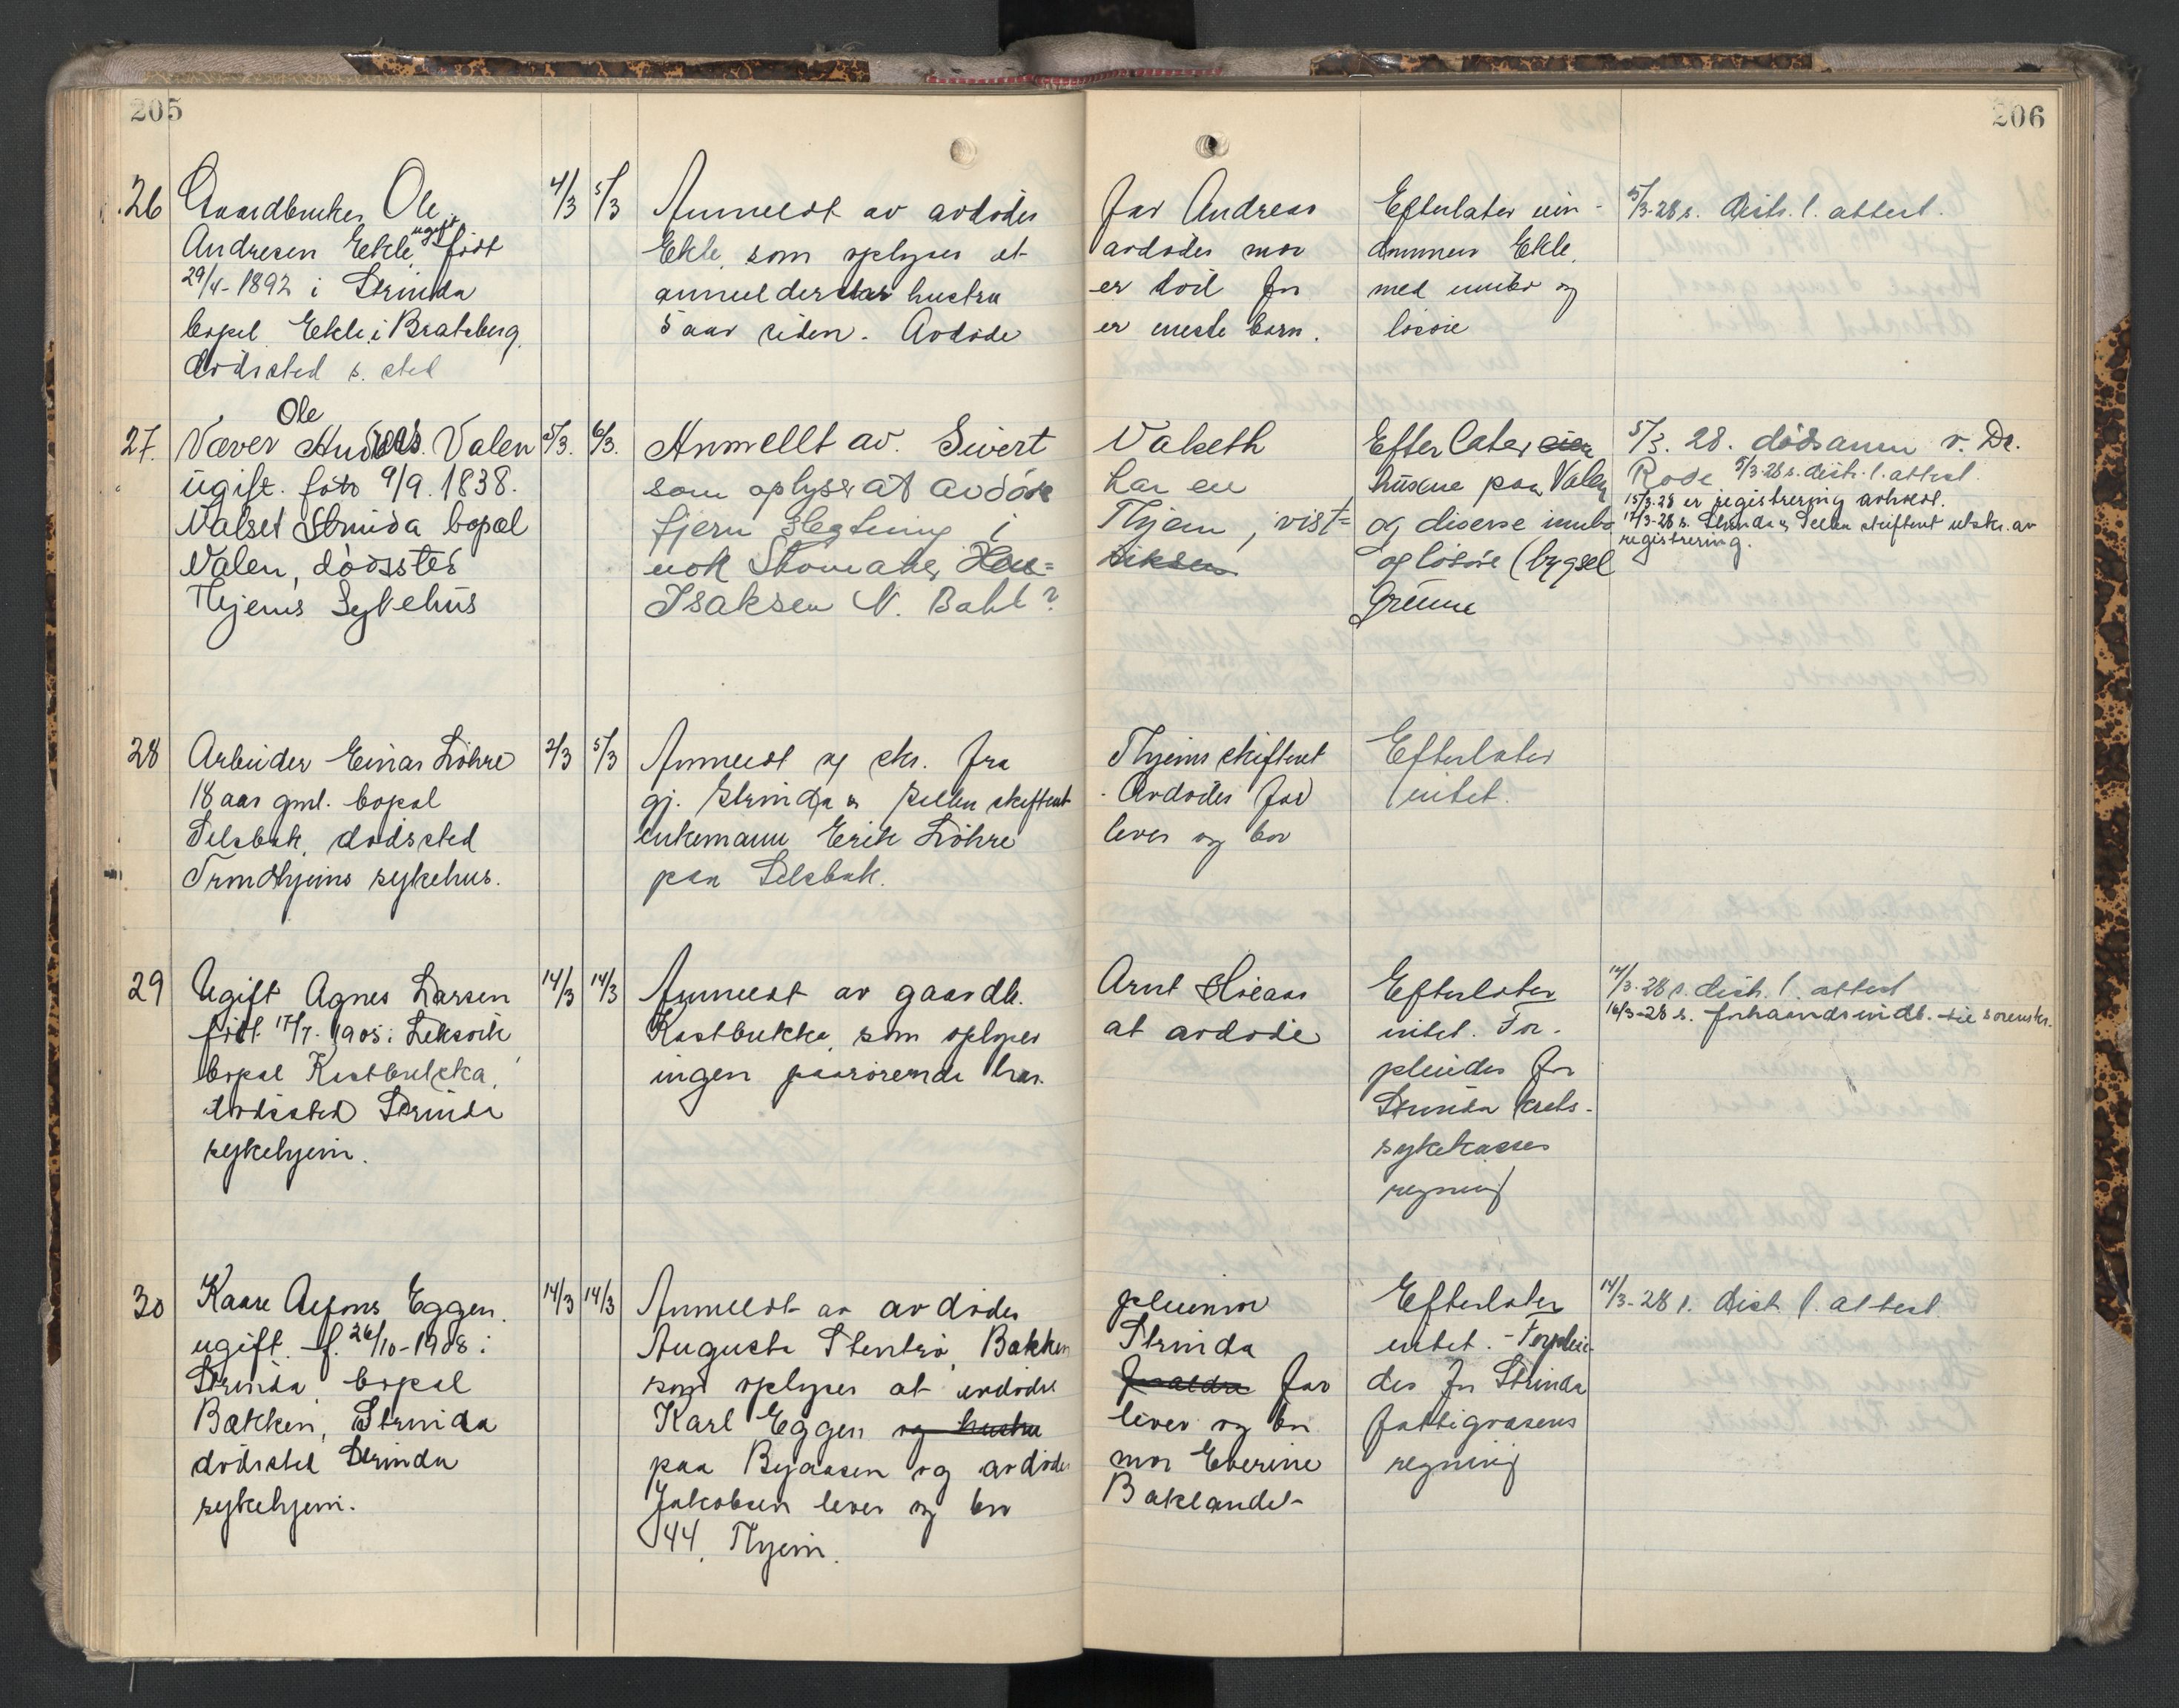 205
206
26 Gaardbruker Ole
Andresen Ekle, ugift født
29/4-1892 i Strinda
bopel Ekle i Bratsberg.
dødssted s. sted
4/3 5/3
Anmeldt av avdødes
Ekle, som oplyser at
anmelders hustru
5 aar siden. Avdøde
far Andreas
avdødes mor
er død for
er eneste barn.
Efterlater eien-
dommen Ekle,
med innbo og
løsøre
5/3-28 s. distr. l. attest.
27. Væver Ole Valen
ugift. født 9/9. 1838.
Valset Strinda bopæl
Valen, dødssted
Thjems Sykehus
5/3. 6/3.
Anmellt av. Sivert
som oplyser at avdøde
fjern slegtning i
nok Skomaker
Isaksen N. Bakl?
Valseth
har en
Thjem, vist=
Efterlater eier
husene paa Valen
og diverse innbo
og løsøre (bygsel
Grunn
5/3. 28. dødsanm v. Dr.
Rode 5/3-28 s. distr. l. attest.
15/3-28 er registrering avholdt.
17/3-28 s. Strinda & Selbu skifteret utskr. av
registrering.
28 Arbeider Einar Löhre
18 aar gml. bopæl
Selsbak, dødssted
Trondhjems sykehus.
2/3 5/3
Anmeldt og skr. fra
gj. Strinda & Selbu skifteret
enkemann Erik Löhre
paa Selsbak.
Thjems skifteret
Avdødes far
lever og bor
Efterlater
intet.
29 Ugift Agnes Larsen
født 17/7-1905 i Leksvik
bopæl Kastbrekka,
dødssted Strinda
sykehjem.
14/3 14/3
Anmeldt av gaardb.
Kastbrekka, som oplyser
ingen paarørende har.
Arnt Hoeaas
at avdøde
Efterlater
intet. For-
pleiedes for
Strinda krets-
sykekasses
regning
14/3-28 s. distr. l. attest
16/3-28 s. forhaandsindb. til sorenskr.
30 Kaare Alfons Eggen.
ugift. f. 26/10-1908 i
Strinda bopæl
Bakken, Strinda
dødssted Strinda
sykehjem.
14/3 14/3
Anmeldt av avdødes
Augusta Stentrø, Bakken
som oplyser at avdødes
Karl Eggen og hustru
paa Byaasen og avdødes
Jakobsen lever og bor
44, Thjem.
pleiemor
Strinda
foreldre far
lever og bor
mor Everine
Baklandet
Efterlater
intet. - Forpleie-
des for Strinda
fattigvæsens
regning
14/3-28 s. distr. l. attest.